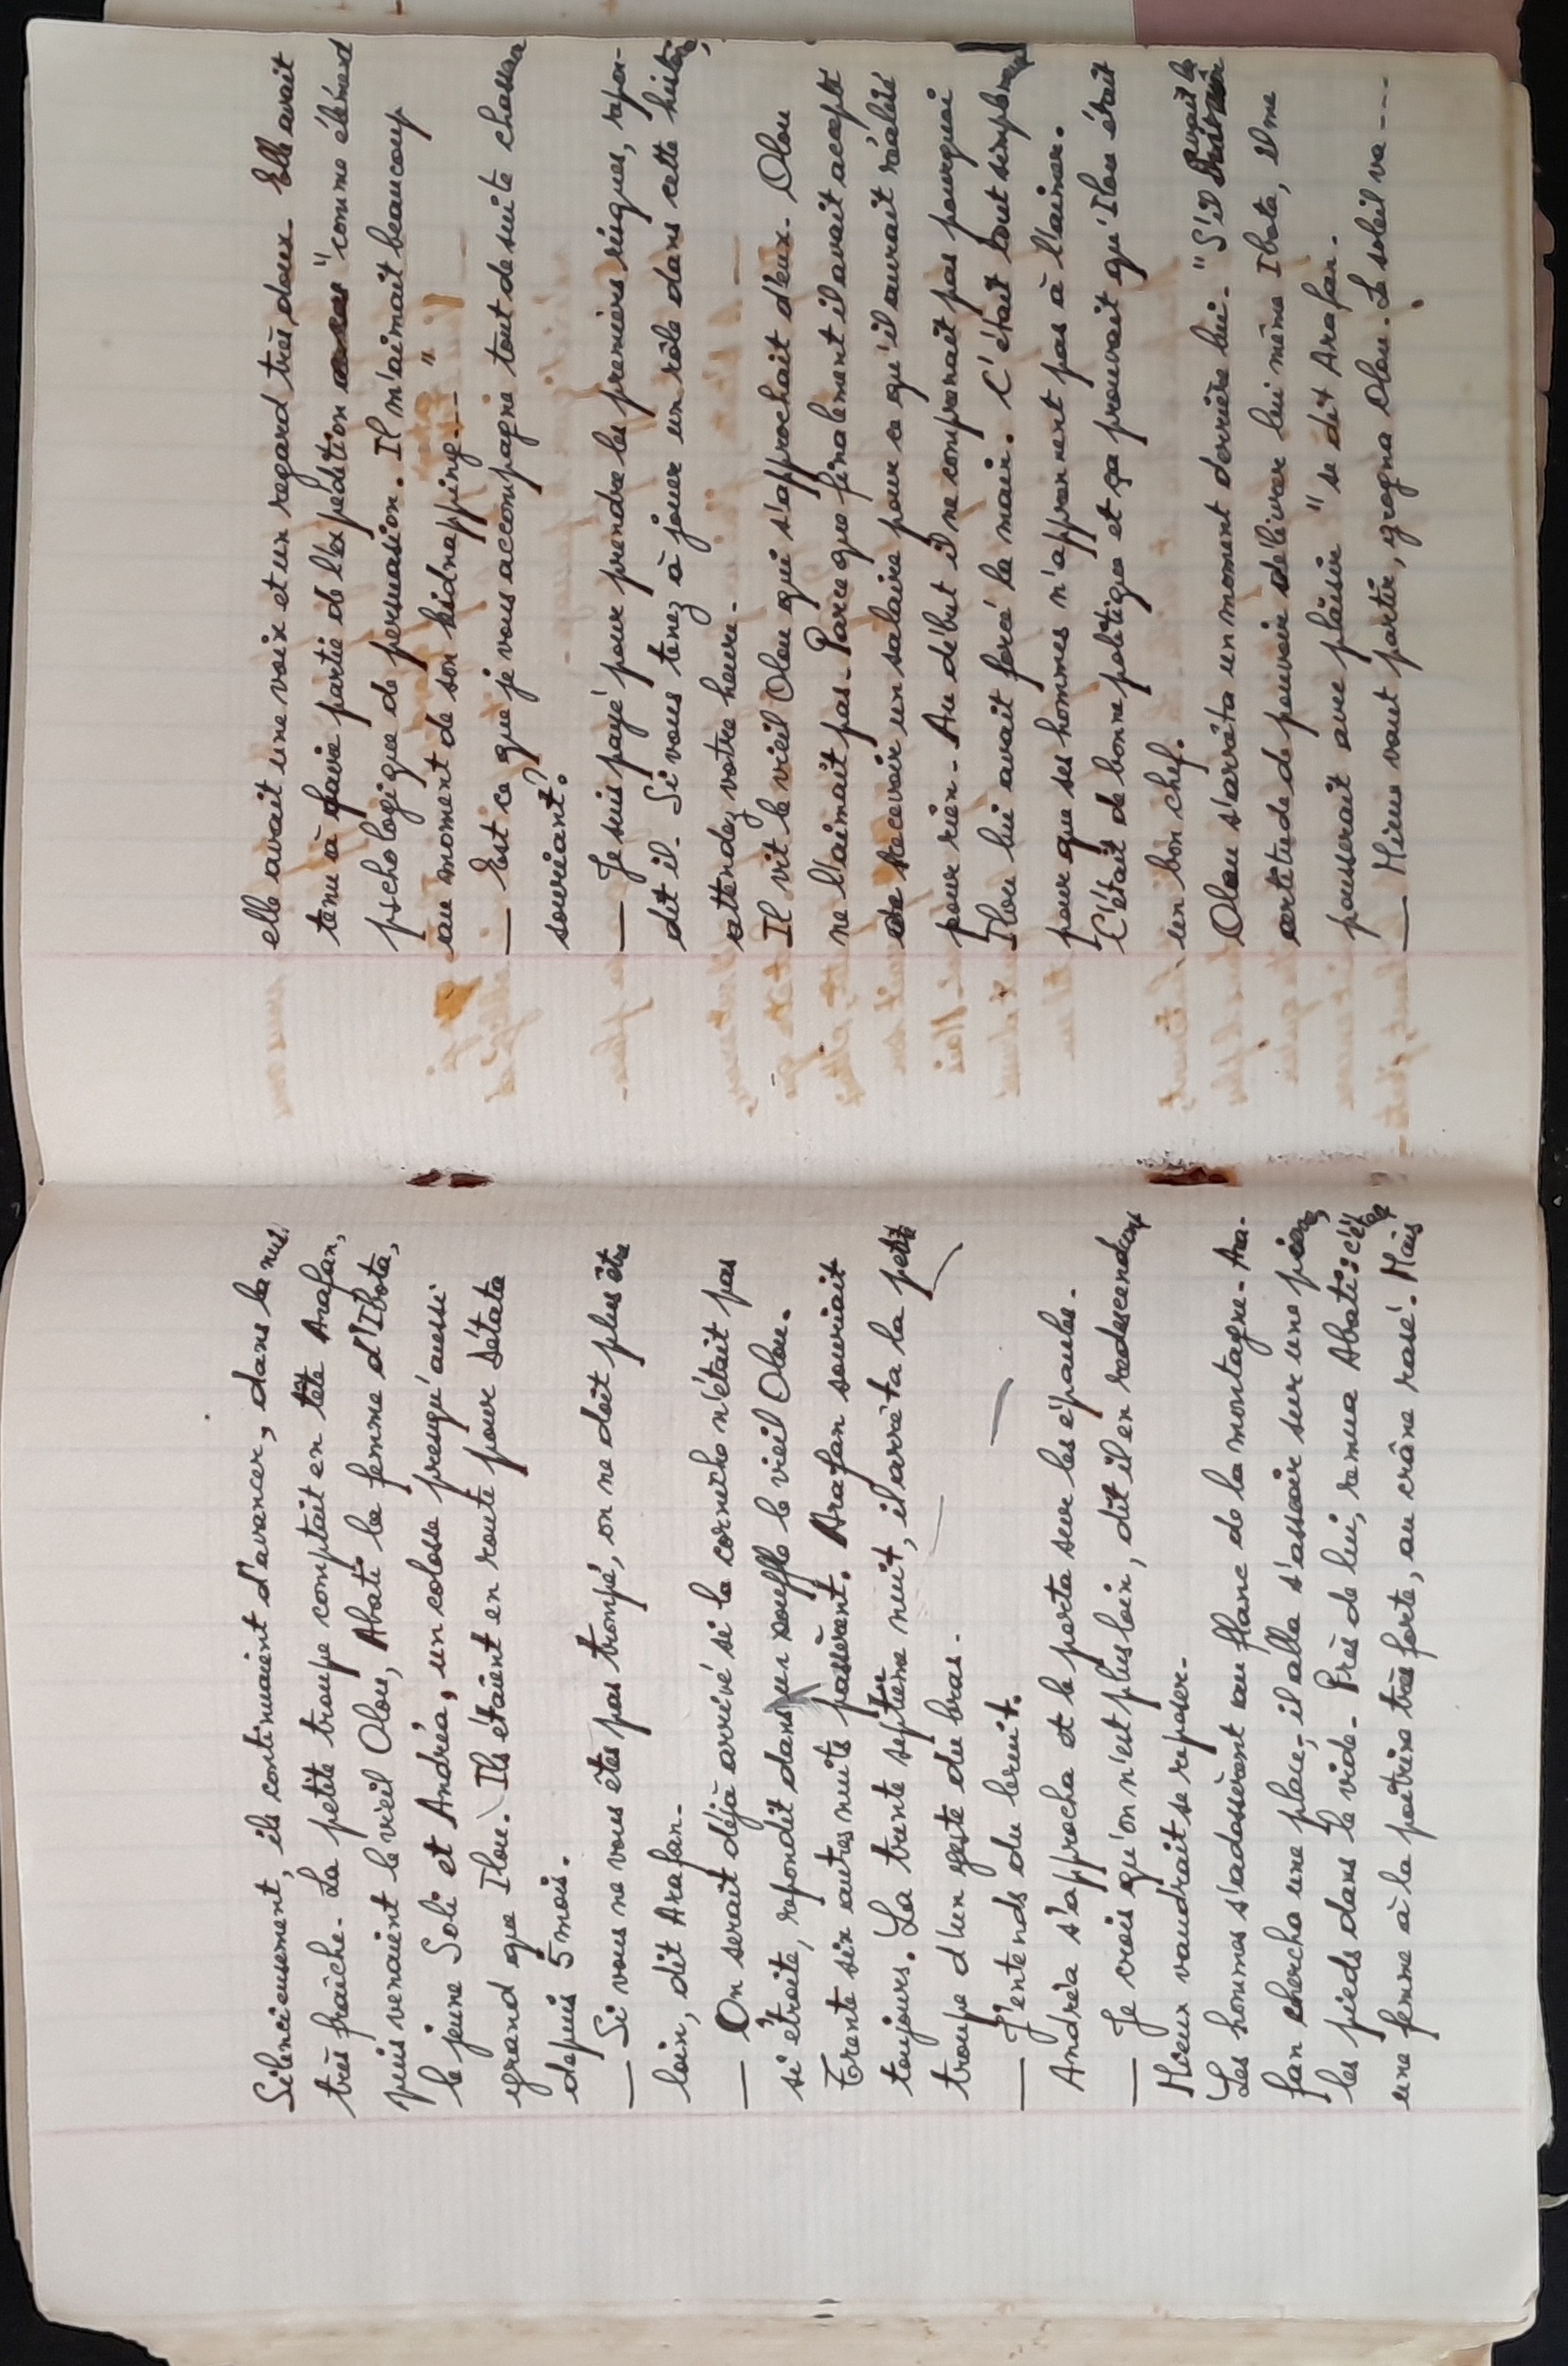 Silencieusement, ils continuaient d'avancer, dans la nuit
très fraîche. La petite troupe comptait en tête Arafan,
puis venaient le vieil Olou, Abati la femme d'Ibota,
le jeune Soli et Andréa, un colosse presqu'aussi
grand que Ilou. Ils étaient en route pour Sétata
depuis 5 mois.
— Si vous ne vous êtes pas trompé, on ne doit plus être
loin, dit Arafan.
— On serait déjà arrivé si la corniche n'était pas
si étroite, repondit dans un souffle le vieil Olou.
Trente six autres nuits passèrent. Arafan souriait
toujours. La trente septième nuit, il arrêta la petite
troupe d'un geste du bras.
— J'entends du bruit.
Andréa s'approcha et le porta sur les épaules.
— Je crois qu'on n'est plus loin, dit il en redescendant
Mieux vaudrait se reposer.
Les hommes s'adossèrent au flanc de la montagne. Ara-
fan chercha une place, il alla s'asseoir sur une pierre,
les pieds dans le vide. Près de lui, remua Abati : c'était
une femme à la poitrine très forte, au crâne rasé. Mais
elle avait une voix et un regard très doux. Elle avait
tenu à faire partie de l'expédition "comme élément
pschologique de persuasion. Il m'aimait beaucoup
au moment de son kidnapping... "
— Est ce que je vous accompagne tout de suite chassa
souriant?
— Je suis payé pour prendre les premiers risques, repon-
dit il. Si vous tenez à jouer un rôle dans cette histoire,
attendez votre heure.
Il vit le vieil Olou qui s'approchait d'eux. Olou
ne l'aimait pas. Parce que finalement il avait accepté
de recevoir un salaire pour ce qu'il aurait réalisé
pour rien. Au début il ne comprenait pas pourquoi
Ilou lui avait forcé la main. C'était tout simplement
pour que ses hommes n'apprennent pas à l'aimer.
C'était de bonne politique et ça prouvait qu'Ilou était
un bon chef.
Olou s'arrêta un moment derrière lui. "S'il avait la
certitude de pouvoir délivrer lui même Ibota, il me
pousserait avec plaisir " se dit Arafan.
— Mieux vaut partir, grogna Olou. Le soleil va ---